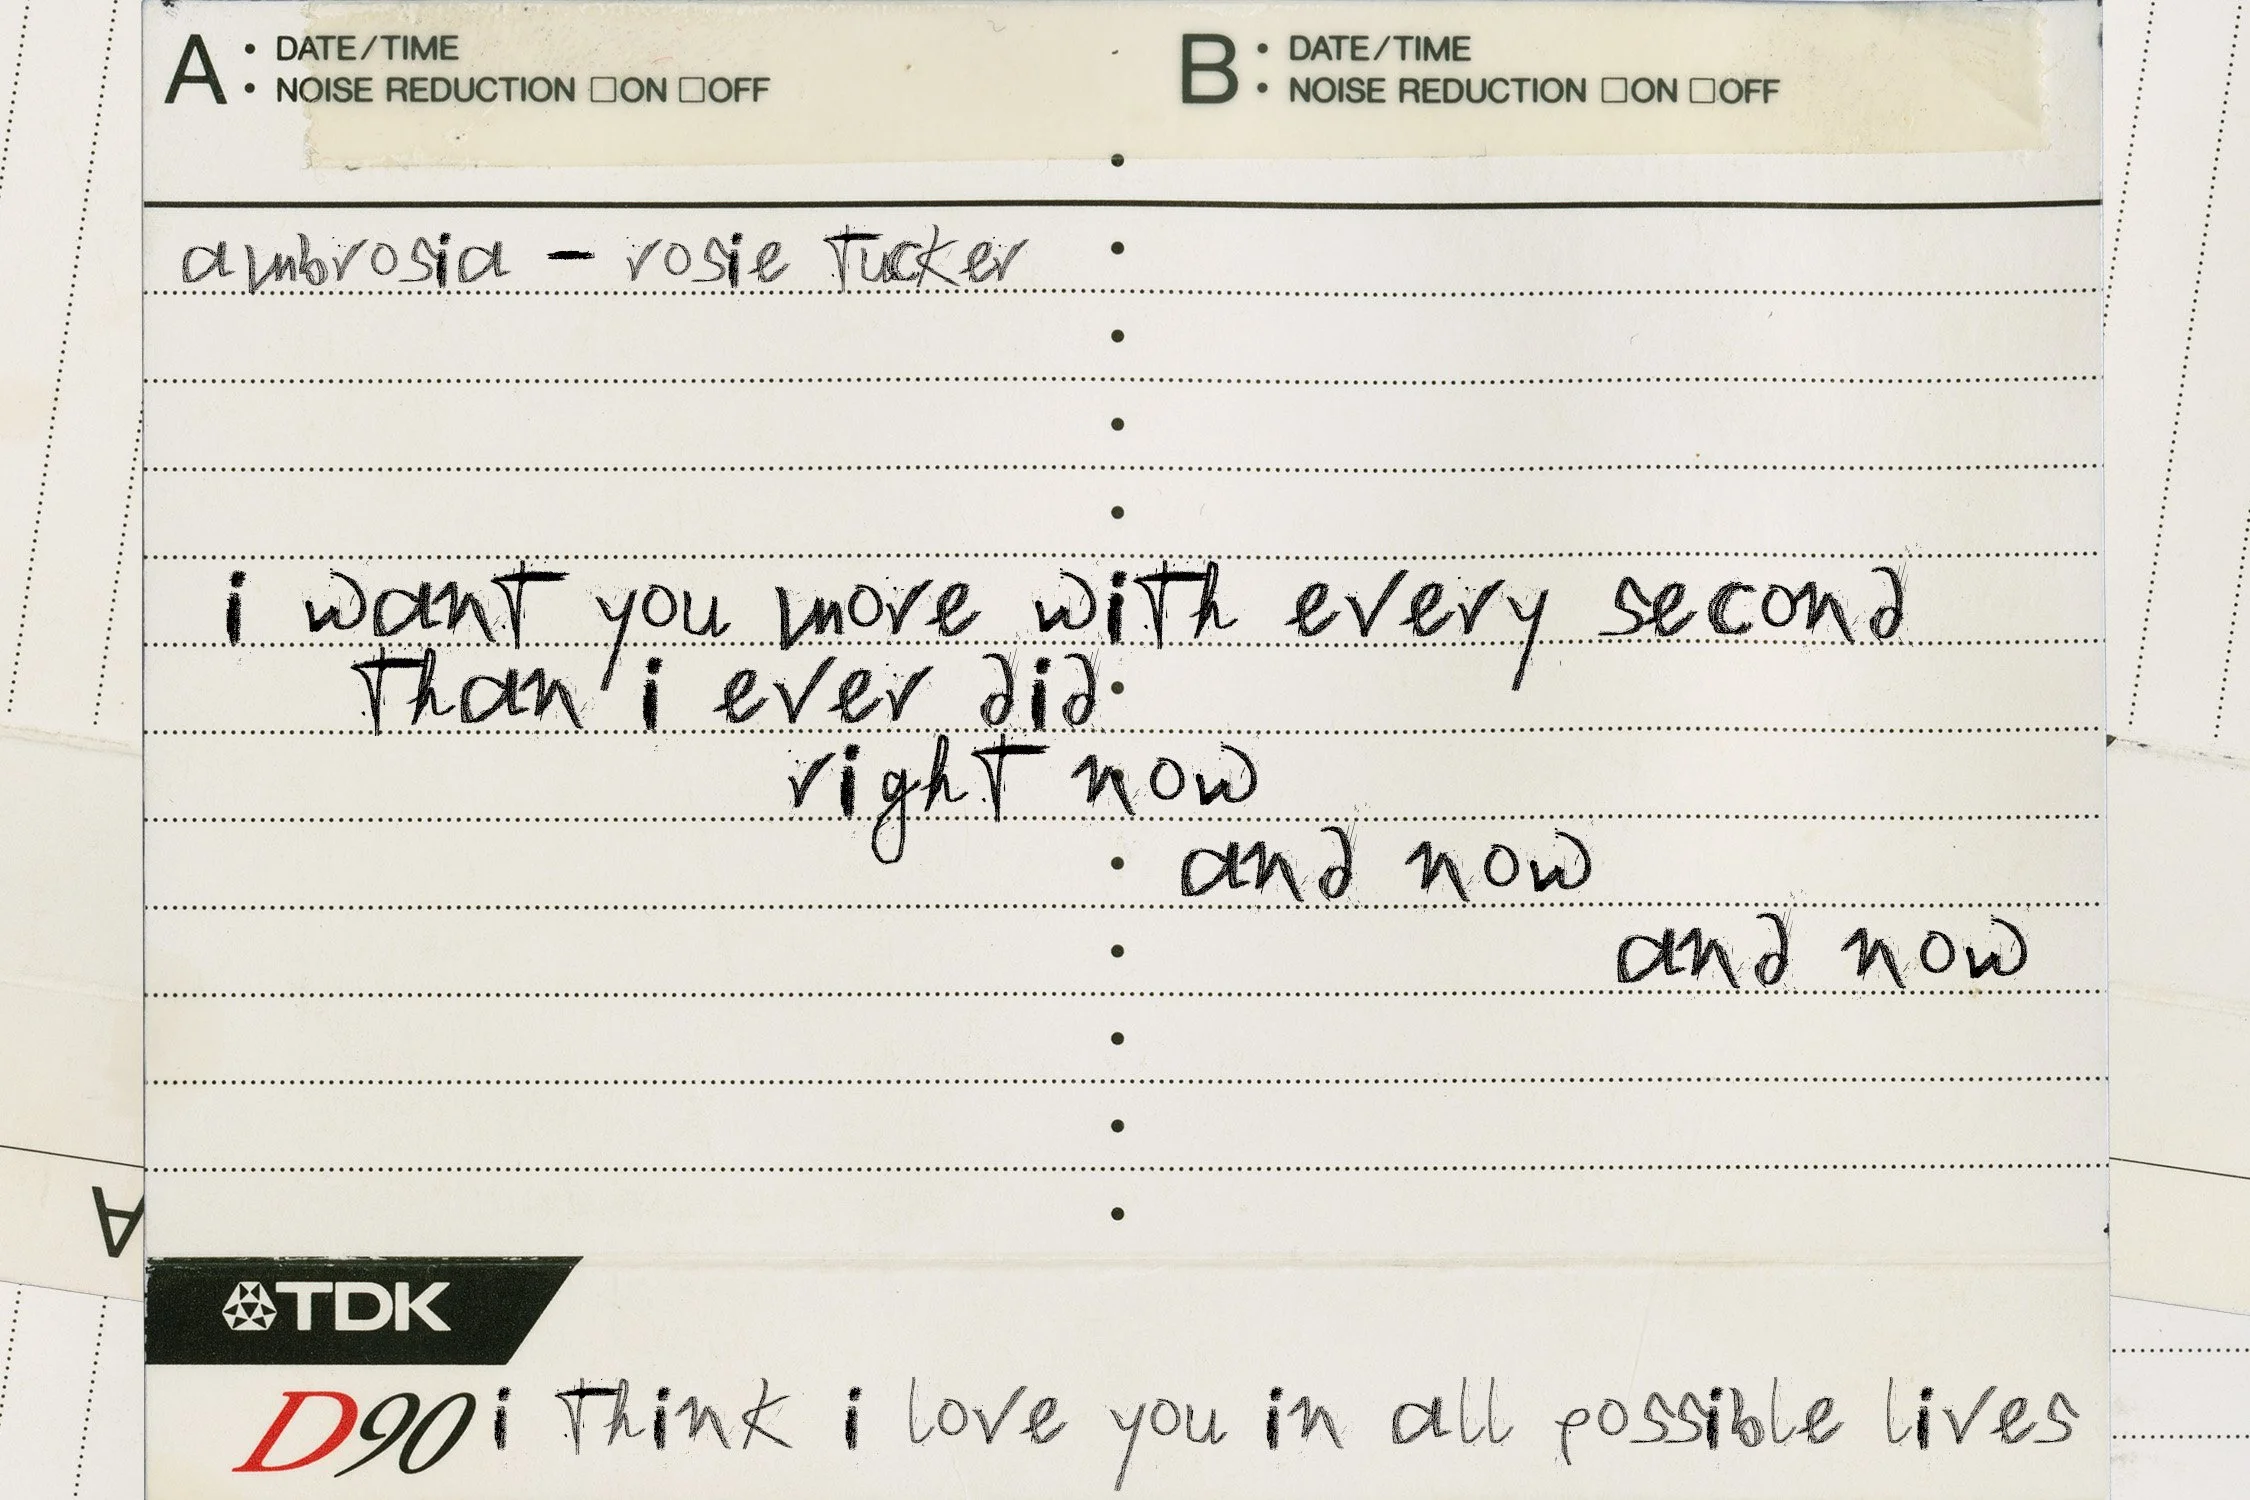 A • DATE/TIME
• NOISE REDUCTION □ON □OFF
B • DATE/TIME
• NOISE REDUCTION □ON □OFF
ambrosia - rosie tucker
i want you more with every second
than i ever did
right now
and now
and now
A
TDK
D90 i think i love you in all possible lives